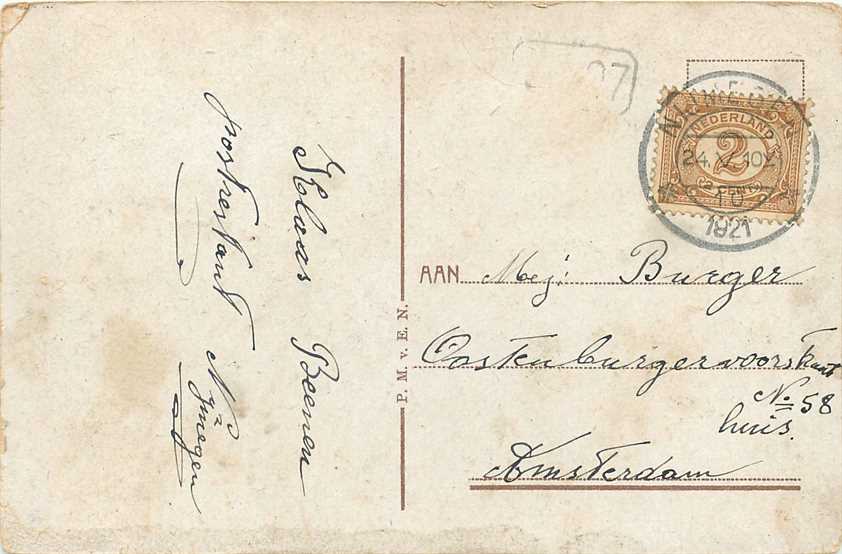 Klaas Beenen
postrestant Nymegen
P. M. v. E. N.
97
NIJMEGEN
24.V.10V
10
1921
NEDERLAND
2
(2 CENT)
AAN Mej: Burger
Oostenburgervoorstraat
No 58
huis.
Amsterdam